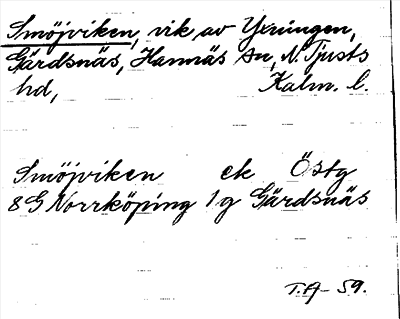 Smöjviken, vik av Yxningen,
Gärdsnäs, Hannäs sn, N. Tjusts
hd, Kalm. l.
Smöjviken ek Östg
8G Norrköping 1g Gärdsnäs
T.A- 59.